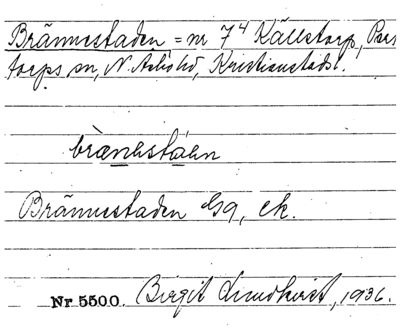 Brännestaden = nr 7⁴ Källstorp, Pers
torps sn, N. Åsbo hd, Kristianstads l.
bræ̀nestàen
Brännestaden Gg, ek.
Nr 5500. Birgit Lundkvist, 1936.